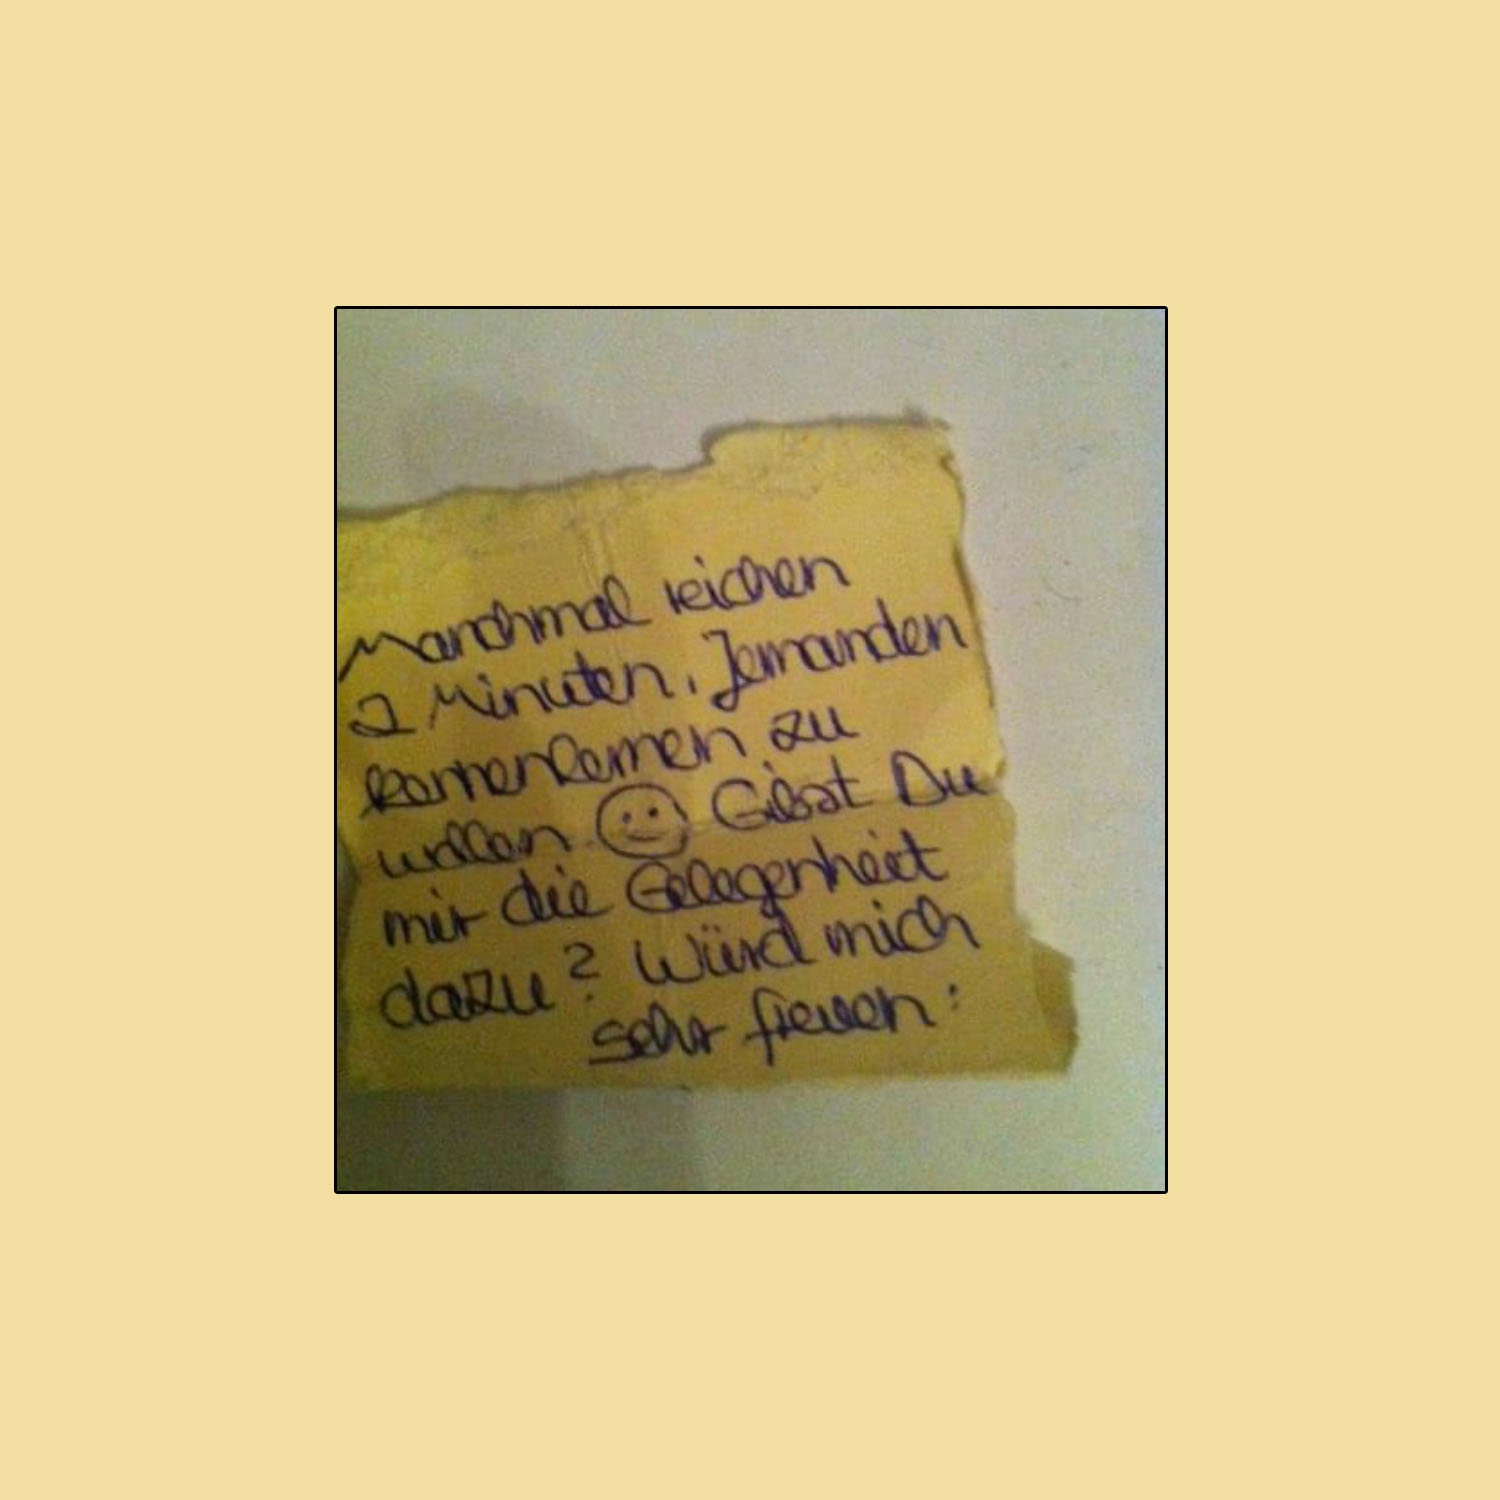 Manchmal reichen
2 Minuten, Jemanden
kennenlernen zu
wollen ☺ Gibst Du
mir die Gelegenheit
dazu? Würd mich
sehr freuen: